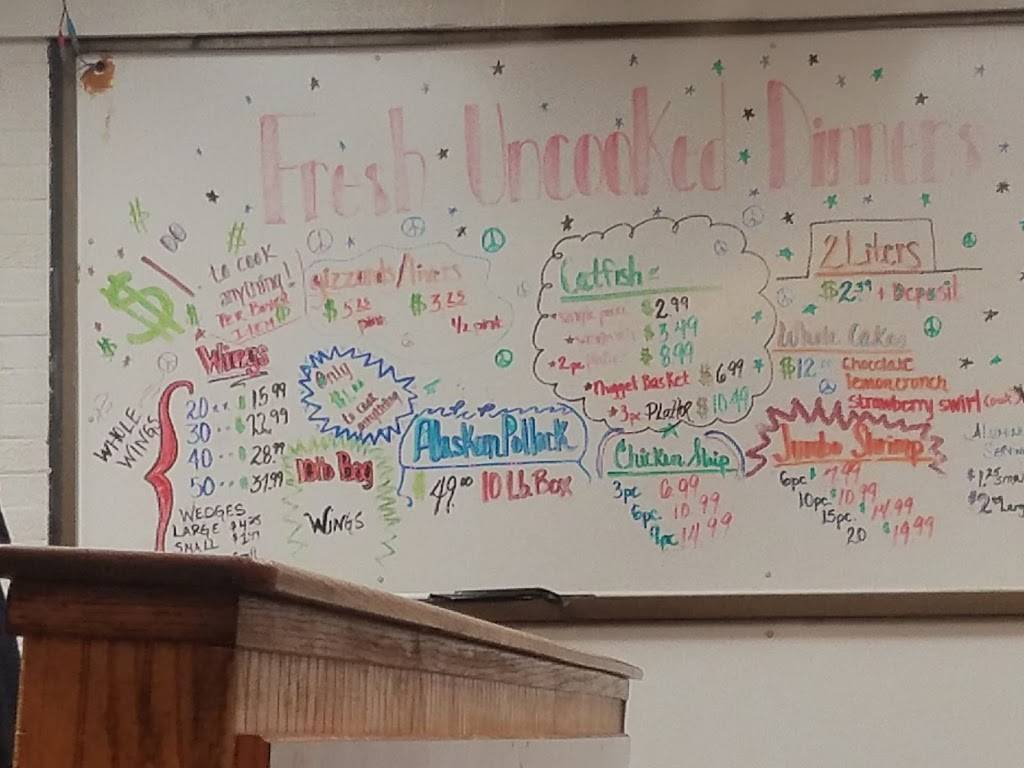 Fresh Uncooked Dinners
to cook
anything!
gizzards/livers
$5.25 $3.25
pint 1/2 pint
Wings
WHOLE
WINGS
20 $15.99
30 22.99
40 28.99
50 37.99
WEDGES
LARGE
SMALL
Only
to cook
anything
10 lb Bag
WINGS
Alaskan Pollock
49.00 10 Lb. Box
Catfish
$2.99
$3.49
2pc $8.99
Nugget Basket $6.99
3pc Platter $10.49
Chicken Strip
3pc 6.99
6pc. 10.99
14.99
2 Liters
+ Deposit
Whole Cakes
$12 Chocolate
Lemoncrunch
Strawberry swirl
Jumbo Shrimp
6pc $7.99
10pc $10.99
15pc. $14.99
20 $19.99
$1.25 small